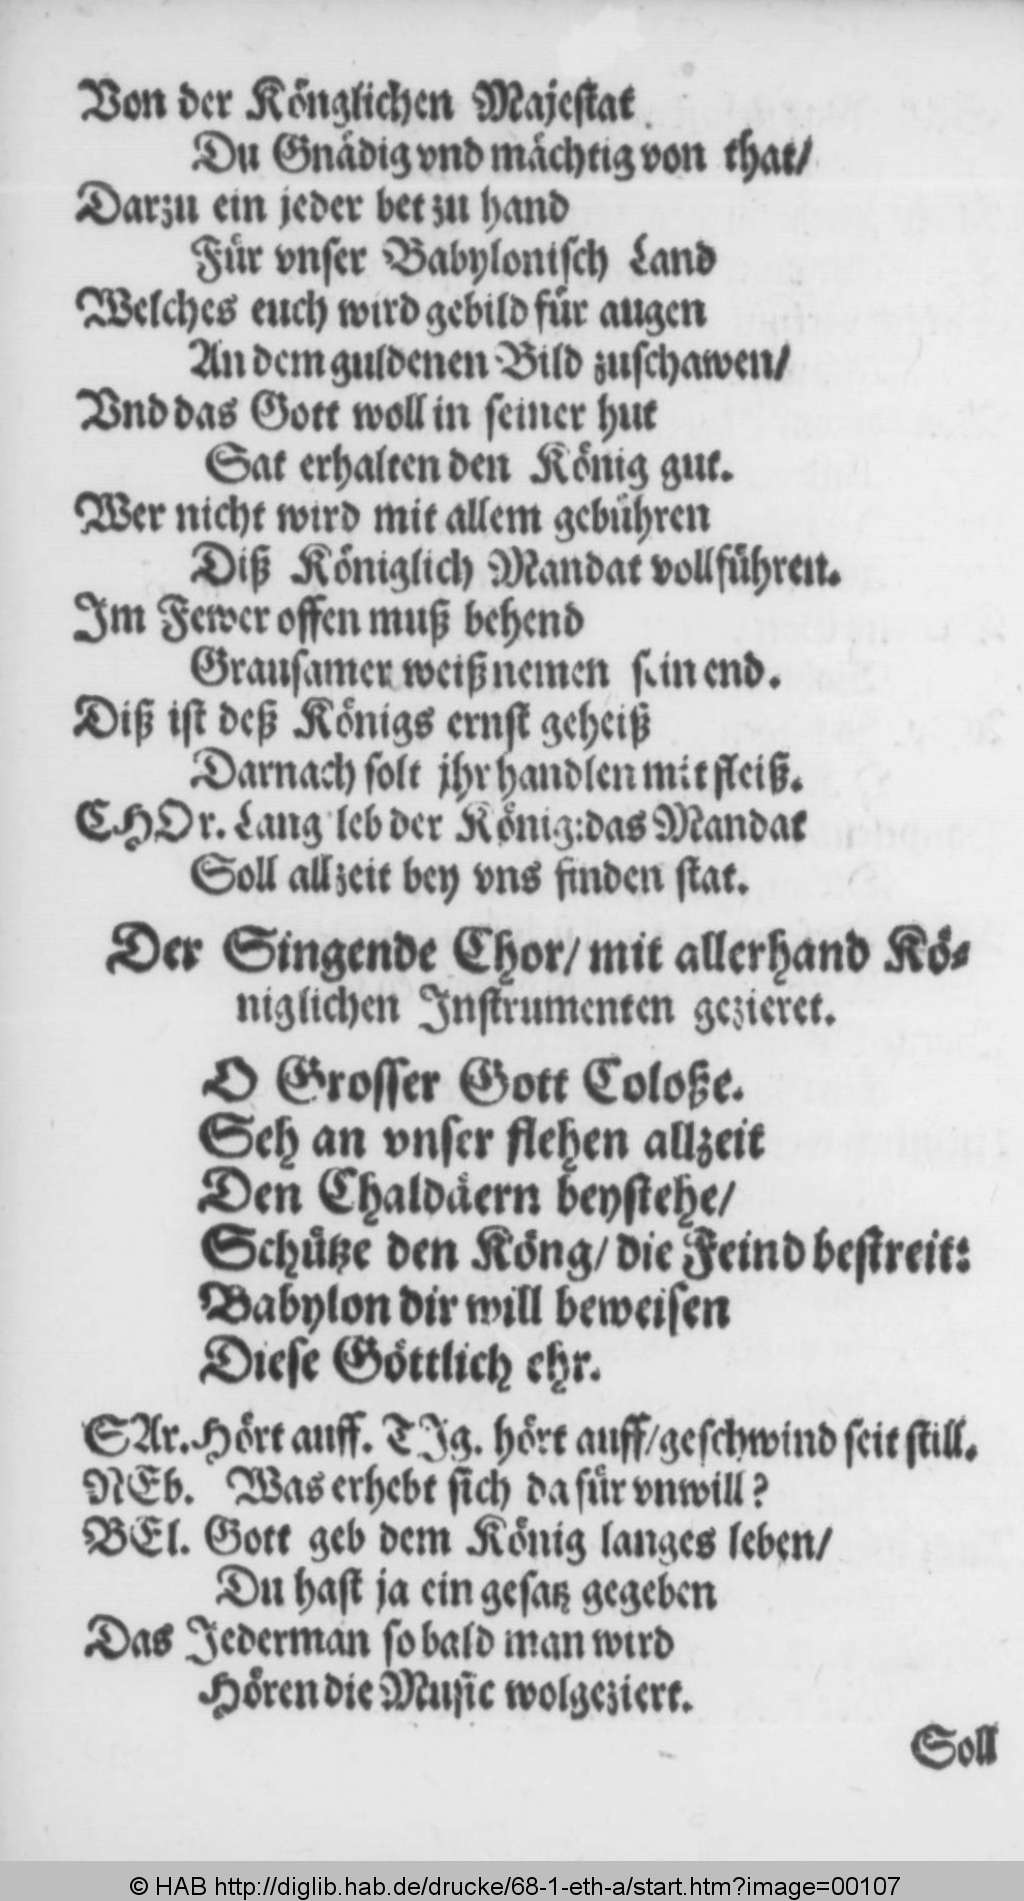 Von der Könglichen Majestat
Du Gnädig vnd mächtig von that/
Darzu ein jeder bet zu hand
Für vnser Babylonisch Land
Welches euch wird gebild für augen
An dem guldenen Bild zuschawen/
Vnd das Gott woll in seiner hut
Sat erhalten den König gut.
Wer nicht wird mit allem gebühren
Diß Königlich Mandat vollführen.
Im Fewer offen muß behend
Grausamer weiß nemen sein end.
Diß ist deß Königs ernst geheiß
Darnach solt jhr handlen mit fleiß.
CHOr. Lang leb der König: das Mandat
Soll allzeit bey vns finden stat.
Der Singende Chor/ mit allerhand Kö-
niglichen Instrumenten gezieret.
O Grosser Gott Coloße.
Seh an vnser flehen allzeit
Den Chaldäern beystehe/
Schütze den Köng/ die Feind bestreit:
Babylon dir will beweisen
Diese Göttlich ehr.
SAr. Hört auff. TJg. hört auff/ geschwind seit still.
NEb. Was erhebt sich da für vnwill?
BEl. Gott geb dem König langes leben/
Du hast ja ein gesatz gegeben
Das Jederman so bald man wird
Hören die Music wolgeziert.
Soll
© HAB http://diglib.hab.de/drucke/68-1-eth-a/start.htm?image=00107